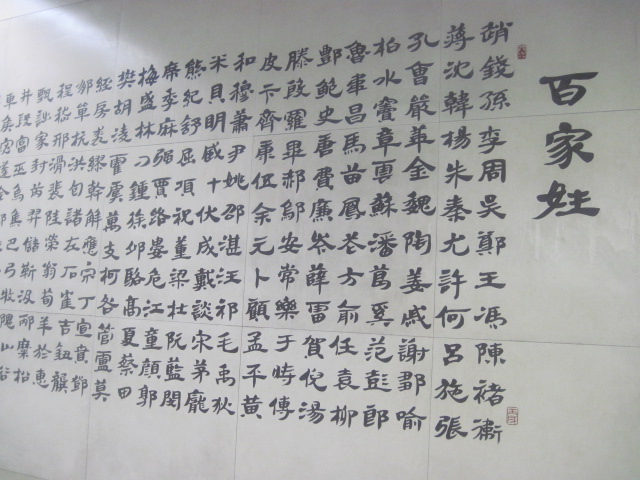 百家姓
趙錢孫李周吳鄭王馮陳褚衛
蔣沈韓楊朱秦尤許何呂施張
孔曹嚴華金魏陶姜戚謝鄒喻
柏水竇章雲蘇潘葛奚范彭郎
魯韋昌馬苗鳳花方俞任袁柳
酆鮑史唐費廉岑薛雷賀倪湯
滕殷羅畢郝鄔安常樂于時傅
皮卞齊康伍余元卜顧孟平黃
和穆蕭尹姚邵湛汪祁毛禹狄
米貝明臧計伏成戴談宋茅龐
熊紀舒屈項祝董梁杜阮藍閔
席季麻強賈路婁危江童顏郭
梅盛林刁鍾徐邱駱高夏蔡田
樊胡凌霍虞萬支柯昝管盧莫
經房裘繆幹解應宗丁宣賁鄧
郁單杭洪包諸左石崔吉鈕龔
程嵇邢滑裴陸榮翁荀羊於惠
甄麴家封芮羿儲靳汲邴糜松
井段富巫烏焦巴弓牧隗山谷